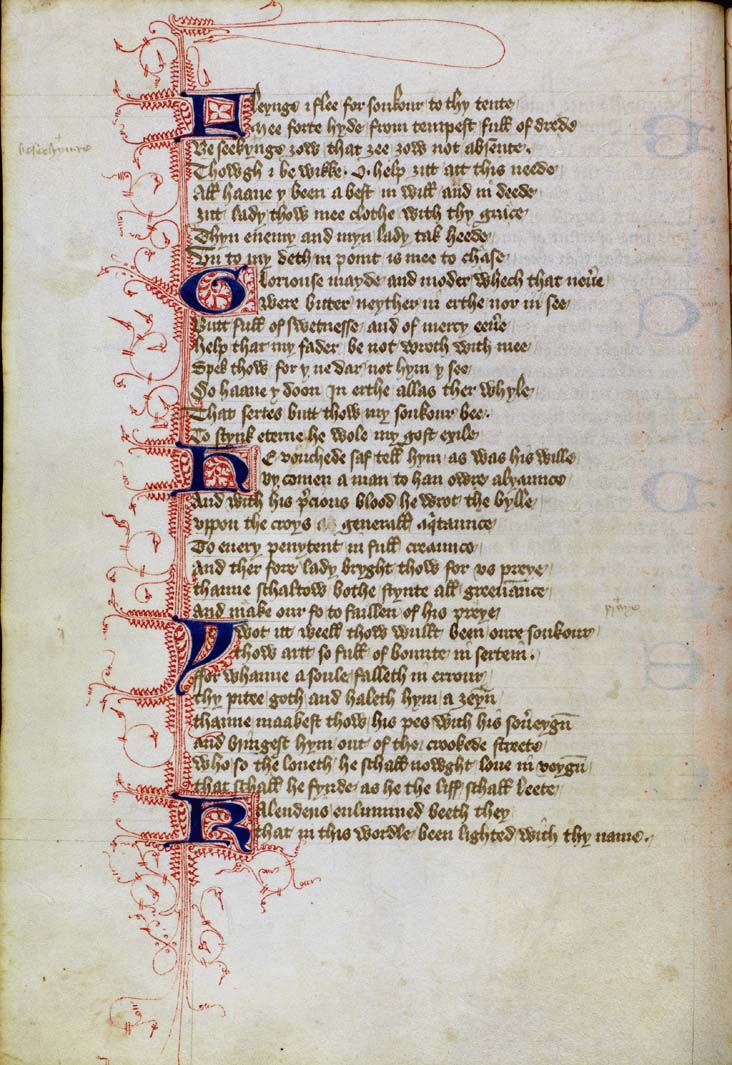 Fleynge i flee for soukour to thy tente
Mee forte hyde from tempest full of drede
Beseekynge zow that zee zow not absente.
Thowgh i be wikke. O. help zitt att this neede
All haaue y been a best in will and in deede
zitt lady thow mee clothe with thy grace
Thyn enemy and myn lady tak heede
Vn to my deth in poynt is mee to chase
Gloriouse mayde and moder whech that neue
were bitter neyther in erthe nor in see
Butt full of swetnesse and of mercy eue
help that my fader be not wroth with mee
Spek thow for y ne dar not hym y see
So haaue y doon In erthe allas ther whyle
That sertes butt thow my soukour bee.
To stynk eterne he wole my gost exile
He vouchede saf tell hym as was his wille
by comen a man to han owre alyaunce
And with his pcious blood he wrot the bylle
vppon the croys as generall aqitaunce
To euery penytent in full creaunce
And ther fore lady bryght thow for vs preye
thanne schaltow bothe stynte all greeuance
And make our fo to faillen of his preye
Y wot itt weell thow wuilt been oure soukour
thow artt so full of bounte in sertein.
ffor whanne a soule falleth in errour
thy pitee goth and haleth hym a zeyn
thanne maakest thow his pes with his soueygn
And bringest hym out of the crookede streete
who so the loueth he schall nowght loue in veygn
that schall he fynde as he the liff schall leete
Kalenders enlumined beeth they
that in this wordle been lighted with thy name.
besechynge
preye